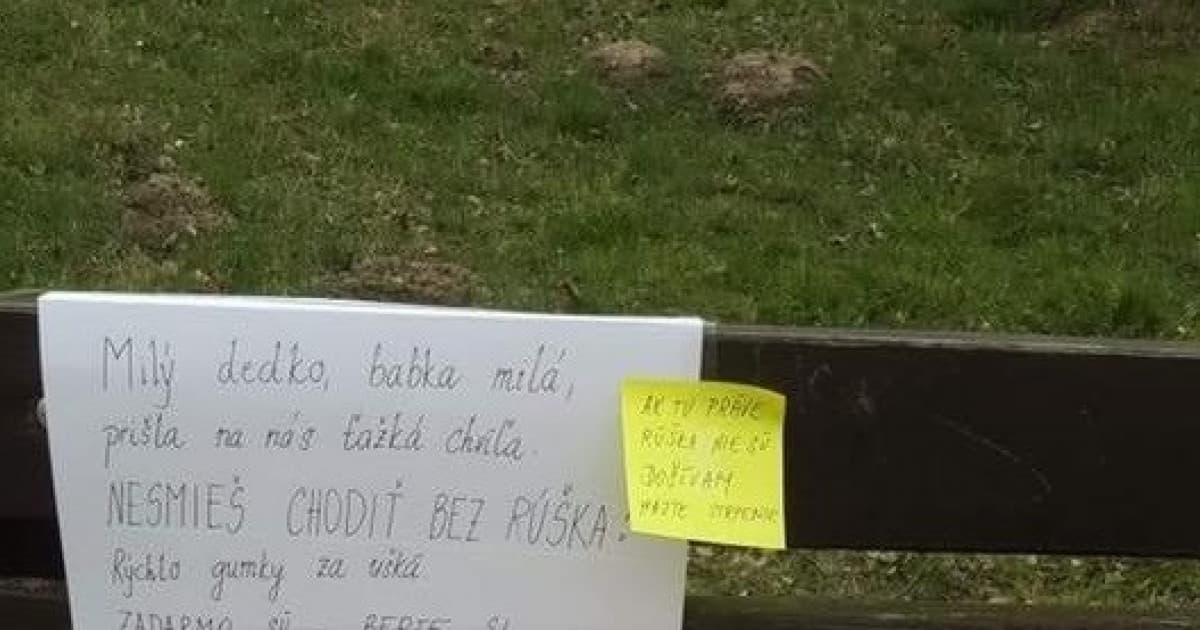 Milý dedko, babka milá,
prišla na nás ťažká chvíľa.
NESMIEŠ CHODIŤ BEZ RÚŠKA!
Rýchlo gumky za uška
ZADARMO SÚ BERTE SI
AK TU PRÁVE
RÚŠKA NIE SÚ
DOŠÍVAM
MAJTE STRPENIE